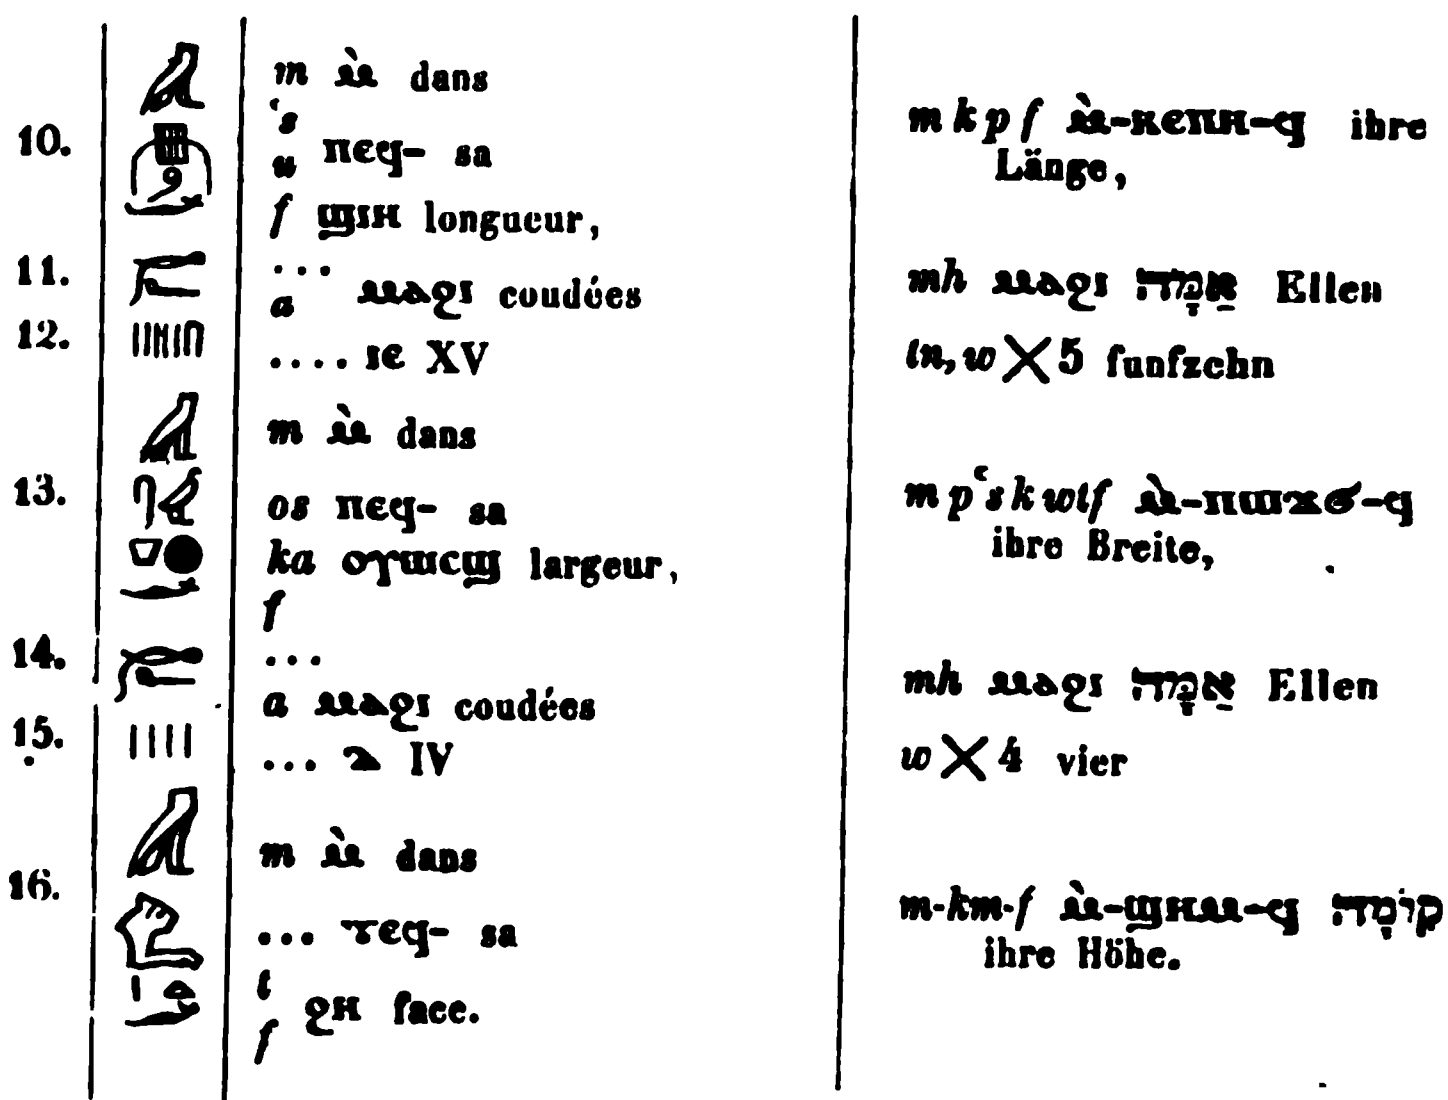 m ⲙ̀ dans
10.
ʿs
u ⲡⲉϥ- sa
f ϣⲓⲏ longueur,
m k p f ⲙ̀-ⲕⲉⲡⲏ-ϥ ihre
Länge,
11.
...
a ⲙⲁϩⲓ coudées
mh ⲙⲁϩⲓ אַמָּה Ellen
12.
.... ⲓⲉ XV
tn, w X 5 funfzehn
m ⲙ̀ dans
13.
os ⲡⲉϥ- sa
ka ⲟⲩⲱⲥϣ largeur,
f
m pʿs k wtf ⲙ̀-ⲡⲱϫϭ-ϥ
ihre Breite,
14.
...
a ⲙⲁϩⲓ coudées
mh ⲙⲁϩⲓ אַמָּה Ellen
15.
... ⲇ IV
w X 4 vier
m ⲙ̀ dans
16.
... ⲧⲉϥ- sa
t
f ϩⲏ face.
m-km-f ⲙ̀-ϣⲏⲙ-ϥ קוֹמָה
ihre Höhe.